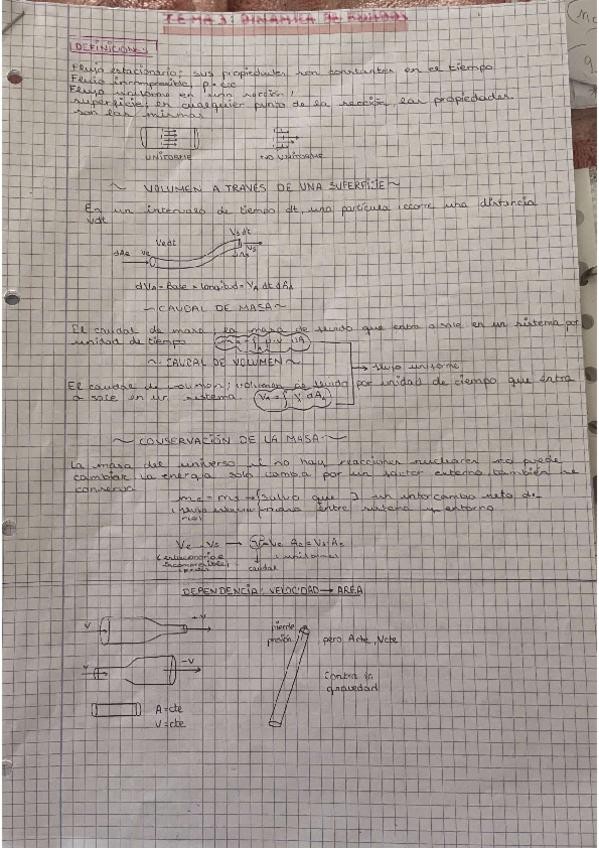 TEMA 3: DINÁMICA DE FLUIDOS
DEFINICIONES
Flujo estacionario: sus propiedades son constantes en el tiempo
Flujo incompresible, ρ = cte
Flujo uniforme en una sección/
superficie; en cualquier punto de la sección, las propiedades
son las mismas
UNIFORME NO UNIFORME
~ VOLUMEN A TRAVÉS DE UNA SUPERFICIE ~
En un intervalo de tiempo dt, una partícula recorre una distancia
vdt
Vedt Vs dt
dAe Ve Vs
dVA = Base × Longitud = VA dt dAA
~ CAUDAL DE MASA ~
El caudal de masa, es masa de fluido que entra o sale en un sistema por
unidad de tiempo
flujo uniforme
~ CAUDAL DE VOLUMEN ~
El caudal de volumen; volumen de fluido por unidad de tiempo que entra
o sale en un sistema
~ CONSERVACIÓN DE LA MASA ~
La masa del universo si no hay reacciones nucleares no puede
cambiar. La energía solo cambia por un factor externo, también se
conserva
me = ms → (salvo que ∃ un intercambio neto de
masa entre sistema y entorno
Ve Vs → Ve Ae = Vs As
(estacionario e
incompresible,
caudal uniformes
DEPENDENCIA: VELOCIDAD → AREA
V +V pierde
presión pero Acte, Vcte
V -V
contra la
gravedad
A = cte
V = cte